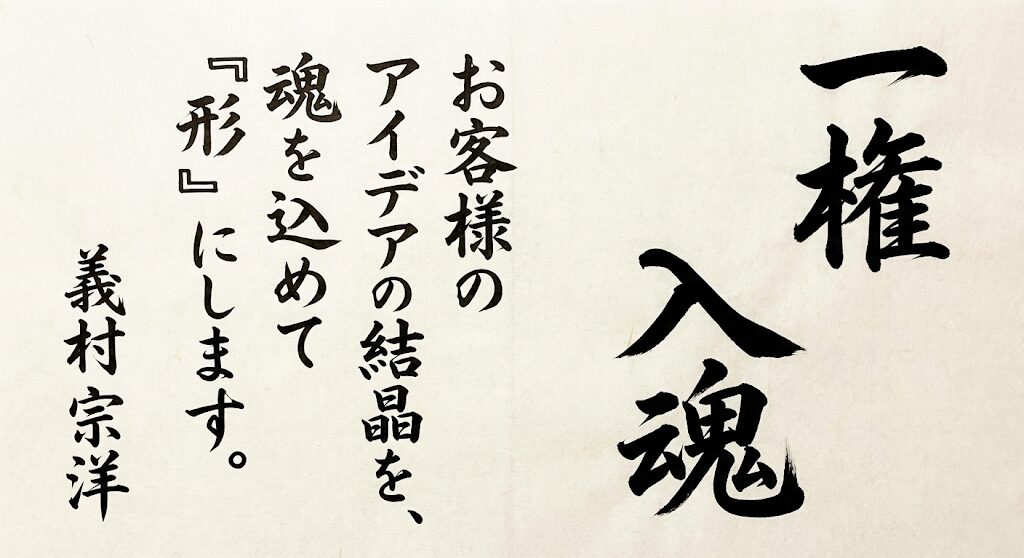 一権
入魂
お客様の
アイデアの結晶を、
魂を込めて
『形』にします。
義村宗洋